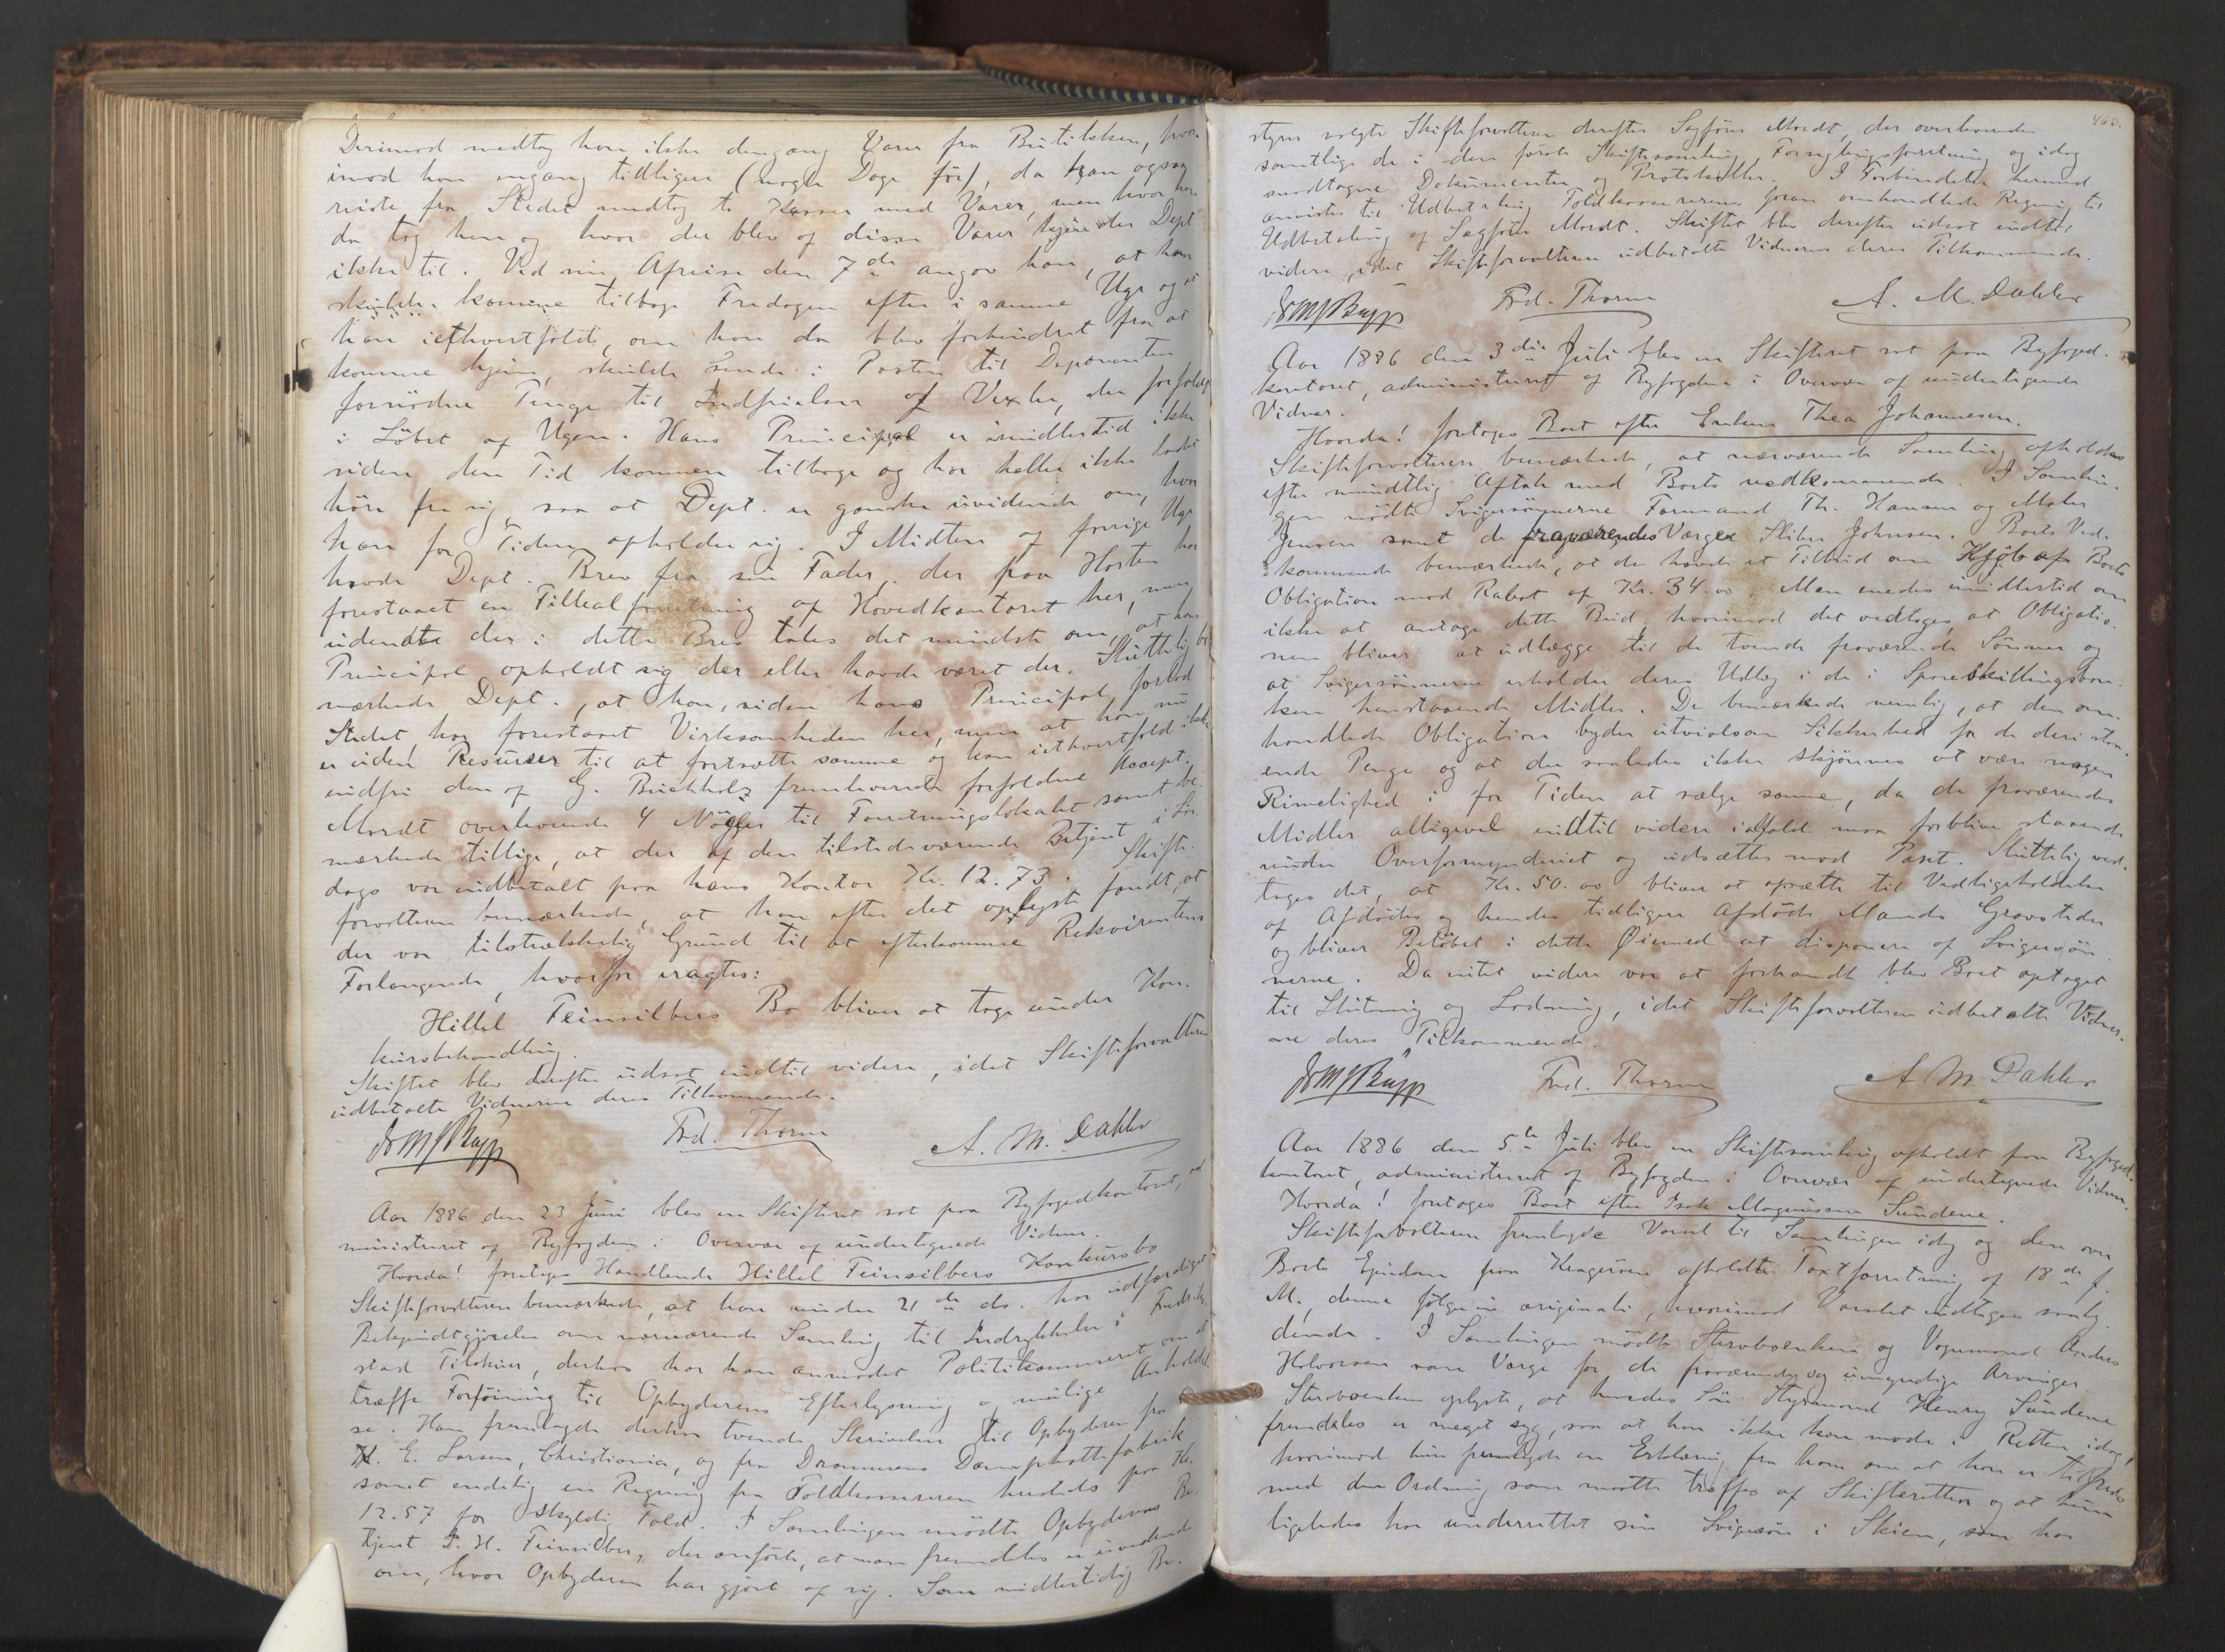 Derimod medtog han ikke dengang Varer fra Butikken, hvor-
imod han engang tidligere (nogle Dage før), da han ogsaa
reiste fra Stedet medtog to Kasser med Varer, men hvor han
da tog hen og hvor der blev af disse Varer kjender Dept.
ikke til. Ved sin Afreise den 7de angav han, at han
skulde komme tilbage Fredagen efter i samme Uge og at
han iethvertfald, om han da blev forhindret fra at
komme hjem, skulde sende i Posten til Deponenten
fornødne Penge til Indfrielse af Vexler, der forfaldt
i Løbet af Ugen. Hans Principal er imidlertid ikke
siden den Tid kommen tilbage og har heller ikke ladet
høre fra sig, saa at Dept. er ganske uvidende om, hvor
han for Tiden opholder sig. I Midten af forrige Uge
havde Dept. Brev fra sin Fader, der paa Horten har
forestaaet en Filial af Hovedkontoret her, men
uden at der i dette Brev tales det mindste om, at hans
Principal opholdt sig der eller havde været der. Sluttelig be-
mærkede Dept., at han, siden hans Principal forlod
Stedet har forestaaet Virksomheden her, men at han nu
er uden Resurser til at fortsætte samme og kan iethvertfald ikke
indfri den af G. Buchholz fremhævede forfaldne Accept.
Mordt overleverede 4 Nøgler til Forretningslokalet samt be-
mærkede tillige, at der af den tilstedeværende Betjent i For-
dags var indbetalt paa hans Kontor Kr. 12.73. Skifte-
forvalteren bemærkede, at han efter det oplyste fandt, at
der var tilstrækkelig Grund til at efterkomme Rekvirentens
Forlangende, hvorfor eragtes:
Hillel Feinsilbers Bo bliver at tage under Kon-
kursbehandling.
Skiftet blev derefter udsat indtil videre, idet Skifteforvalteren
udbetalte Vidnerne deres Tilkommende.
Fred. Thorne A. M. Dahler
Aar 1886 den 23 Juni blev en Skifteret sat paa Byfogedkontoret, ad-
ministreret af Byfogden i Overvær af undertegnede Vidner.
Hvorda! foretoges Handlende Hillel Feinsilbers Konkursbo
Skifteforvalteren bemærkede, at han under 21de ds. har udfærdiget
Bekjendtgjørelse om nærværende Samling til Indrykkelse i Fredrik-
stad Tilskuer, derhos har han anmodet Politikammeret om at
træffe Forføining til Opbyderens Efterlysning og mulige Anholdel-
se. Han fremlagde derhos tvende Skrivelser til Opbyderen fra
H. E. Larsen, Christiania, og fra Drammens Damphattefabrik
samt endelig en Regning fra Toldkassereren lydende paa Kr.
12.57 for skyldig Told. I Samlingen mødte Opbyderens Be-
tjent I. H. Feinsilber, der anførte, at man fremdeles er uvidende
om, hvor Opbyderen har gjort af sig. Som midlertidig Be-
460.
styrer valgte Skifteforvalteren derefter Sagfører Mordt, der overleveredes
samtlige de i den første Skiftesamling, Forseglingsforretning og idag
modtagne Dokumenter og Protokoller. I Forbindelse hermed
anvistes til Udbetaling Toldkassererens foran omhandlede Regning til
Udbetaling af Sagfører Mordt. Skiftet blev derefter udsat indtil
videre, idet Skifteforvalteren udbetalte Vidnerne deres Tilkommende.
Fred. Thorne A. M. Dahler
Aar 1886 den 3die Juli blev en Skifteret sat paa Byfoged-
kontoret, administreret af Byfogden i Overvær af undertegnede
Vidner.
Hvorda! foretoges Boet efter Enken Thea Johannesen.
Skifteforvalteren bemærkede, at nærværende Samling afholdes
efter mundtlig Aftale med Boets vedkommende. I Samlin-
gen mødte Svigersønnerne Formand Th. Hansen og Maler
Jensen samt de fraværendes Værge Sliber Johnsen. Boets Ved-
kommende bemærkede, at de havde et Tilbud om Kjøb af Boets
Obligation med Rabat af Kr. 34.00. Man enedes imidlertid om
ikke at antage dette Bud, hvorimod det vedtoges, at Obligatio-
nen bliver at udlægge til de tvende fraværende Sønner og
at Svigersønnerne erholder deres Udlæg i de i Spareskillingsban-
ken henstaaende Midler. De bemærkede nemlig, at den om-
handlede Obligation byder utvivlsom Sikkerhed for de deri staa-
ende Penge og at der saaledes ikke skjønnes at være nogen
Rimelighed i for Tiden at sælge samme, da de fraværendes
Midler alligevel indtil videre ialfald maa forblive staaende
under Overformynderiet og udsættes mod Pant. Sluttelig ved-
toges det, at Kr. 50.00 bliver at afsætte til Vedligeholdelse
af Afdødes og hendes tidligere afdøde Mands Gravsteder
og bliver Beløbet i dette Øiemed at disponere af Svigersøn-
nerne. Da intet videre var at forhandle blev Boet optaget
til Slutning og Lodning, idet Skifteforvalteren udbetalte Vidner-
ne deres Tilkommende.
Fred. Thorne A. M. Dahler
Aar 1886 den 5te Juli blev en Skiftesamling afholdt paa Byfoged-
kontoret, administreret af Byfogden i Overvær af undertegnede Vidner.
Hvorda! foretoges Boet efter Isak Magnussen Sundene.
Skifteforvalteren fremlagde Varsel til Samlingen idag og den over
Boets Eiendom paa Kragerøen afholdte Taxtforretning af 18de f.
M., denne følger in originali, hvorimod Varslet indtages saaly-
dende. I Samlingen mødte Sterboenken og Vognmand Andres
Halvorsen som Værge for de fraværende og umyndige Arvinger.
Sterboenken oplyste, at hendes Søn Styrmand Henry Sundene
fremdeles er meget syg, saa at han ikke kan møde i Retten idag,
hvorimod hun fremlagde en Erklæring fra ham om at han er tilfreds
med den Ordning som maatte træffes af Skifteretten og at hun
ligeledes har underrettet sin Svigersøn i Skien, som har